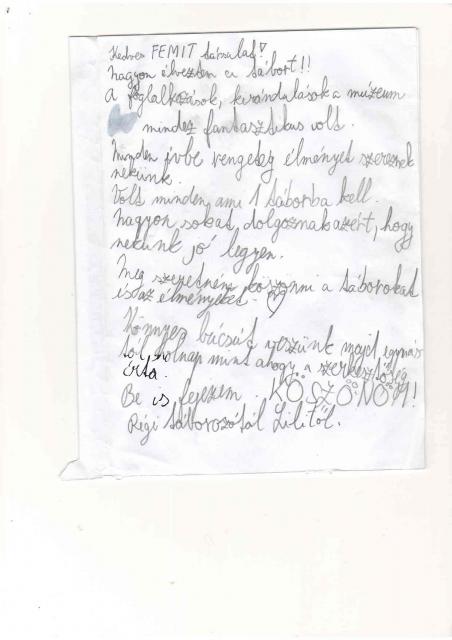 Kedves FEMIT társulat!
nagyon élveztem a tábort!!
A foglalkozások, kirándulások a múzeum
mindez fantasztikus volt.
Minden évbe rengeteg élményet szereznek
nekünk.
Volt minden, ami 1 táborba kell.
nagyon sokat, dolgoznak azért, hogy
nekünk jó legyen.
Meg szeretném köszönni a táborokat
és az élményeket.
Könnyes búcsút veszünk majd egymás
tól, holnap mint ahogy a szerkesztőség
írta.
Be is fejezem. KÖSZÖNÖM!
Régi táborozótól Lilitől.